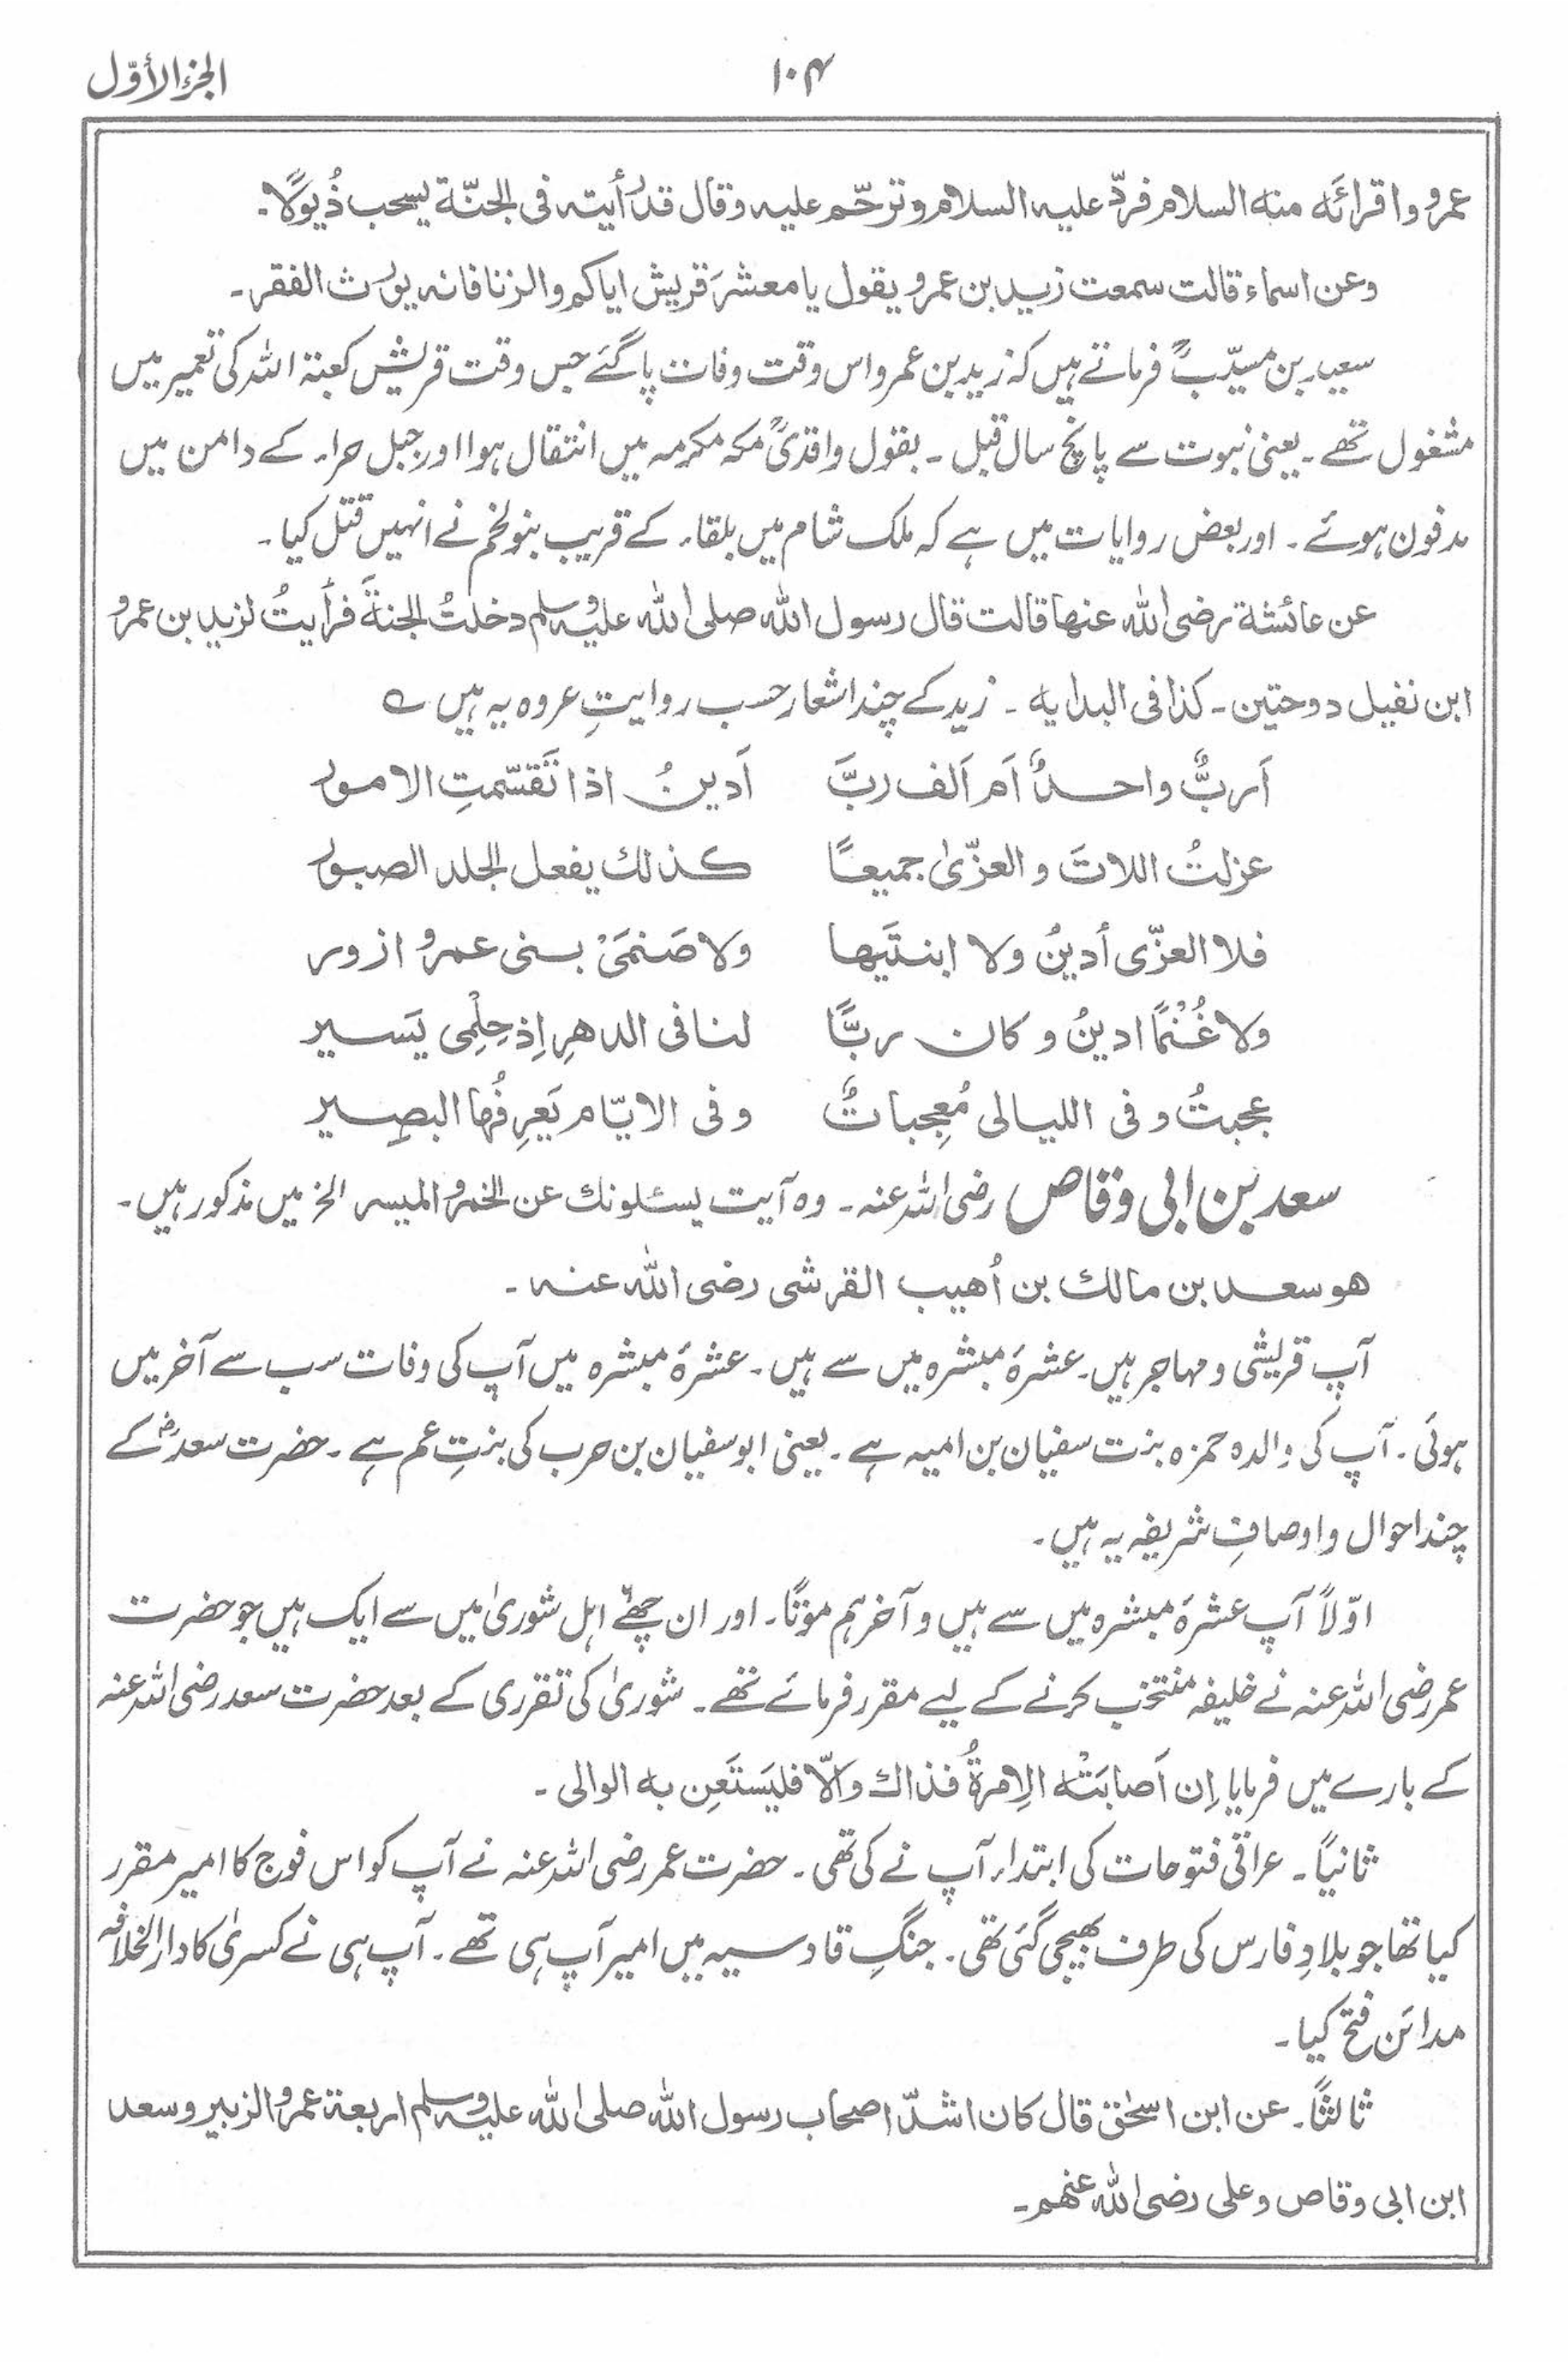 الجزء الأوّل
۱۰۴
عمرو واقرائَه منه السلام فردّ علیه السلام وترحّم علیه وقال قد رأیته فی الجنّة یسحب ذُیوگلًا۔
وعن اسماء قالت سمعت زید بن عمرو یقول یا معشرَ قریش ایاکم والزنا فانه یورث الفقر۔
سعید بن مسیّبؒ فرماتے ہیں کہ زید بن عمرو اس وقت وفات پاگئے جس وقت قریش کعبۃ اللہ کی تعمیر میں
مشغول تھے۔ یعنی نبوت سے پانچ سال قبل۔ بقول واقدیؒ مکہ مکرمہ میں انتقال ہوا اور جبل حراء کے دامن میں
مدفون ہوئے۔ اور بعض روایات میں ہے کہ ملک شام میں بلقاء کے قریب بنو لخم نے انہیں قتل کیا۔
عن عائشة رضی اللہ عنها قالت قال رسول اللہ صلی اللہ علیه وسلم دخلتُ الجنةَ فرأیتُ لزید بن عمرو
ابن نفیل دوحتین۔ کذا فی البدایه۔ زید کے چند اشعار حسب روایتِ عروہ یہ ہیں ؎
اَربٌّ واحدٌ اَم اَلف ربَّ اَدینُ اذا تَقسّمتِ الامور
عزلتُ اللاتَ والعزّیٰ جمیعًا کذلك یفعل الجلد الصبور
فلا العزّی أدینُ ولا ابنتَیها ولا صَنمَیْ بنی عمرو ازور
ولا غُنْمًا ادینُ وکان ربًّا لنا فی الدهرِ اِذ حِلْمِی یَسیر
عجبتُ وفی اللیالی مُعجِباتٌ وفی الایّام یَعرِفُها البصِیر
سعد بن ابی وقاص رضی اللہ عنہ۔ وہ آیت یسئلونك عن الخمر والمیسر الخ میں مذکور ہیں۔
هو سعد بن مالك بن اُهیب القرشی رضی اللہ عنه۔
آپ قریشی و مہاجر ہیں۔ عشرۂ مبشرہ میں سے ہیں۔ عشرۂ مبشرہ میں آپ کی وفات سب سے آخر میں
ہوئی۔ آپ کی والدہ حمزہ بنت سفیان بن امیہ ہے۔ یعنی ابوسفیان بن حرب کی بنتِ عم ہے۔ حضرت سعدؓ کے
چند احوال و اوصافِ شریفہ یہ ہیں۔
اوّلاً آپ عشرۂ مبشرہ میں سے ہیں و آخرہم موتًا۔ اور ان چھے اہل شوریٰ میں سے ایک ہیں جو حضرت
عمر رضی اللہ عنہ نے خلیفہ منتخب کرنے کے لیے مقرر فرمائے تھے۔ شوریٰ کی تقرری کے بعد حضرت سعد رضی اللہ عنہ
کے بارے میں فرمایا اِن اَصابَتْه الاِمرةُ فذاك والّا فلیَستَعِن به الوالی۔
ثانیاً۔ عراقی فتوحات کی ابتداء آپ نے کی تھی۔ حضرت عمر رضی اللہ عنہ نے آپ کو اس فوج کا امیر مقرر
کیا تھا جو بلادِ فارس کی طرف بھیجی گئی تھی۔ جنگِ قادسیہ میں امیر آپ ہی تھے۔ آپ ہی نے کسریٰ کا دار الخلافہ
مدائن فتح کیا۔
ثالثًا۔ عن ابن اسحٰق قال کان اشدّ اصحاب رسول اللہ صلی اللہ علیه وسلم اربعة عمر والزبیر وسعد
ابن ابی وقاص وعلی رضی اللہ عنهم۔